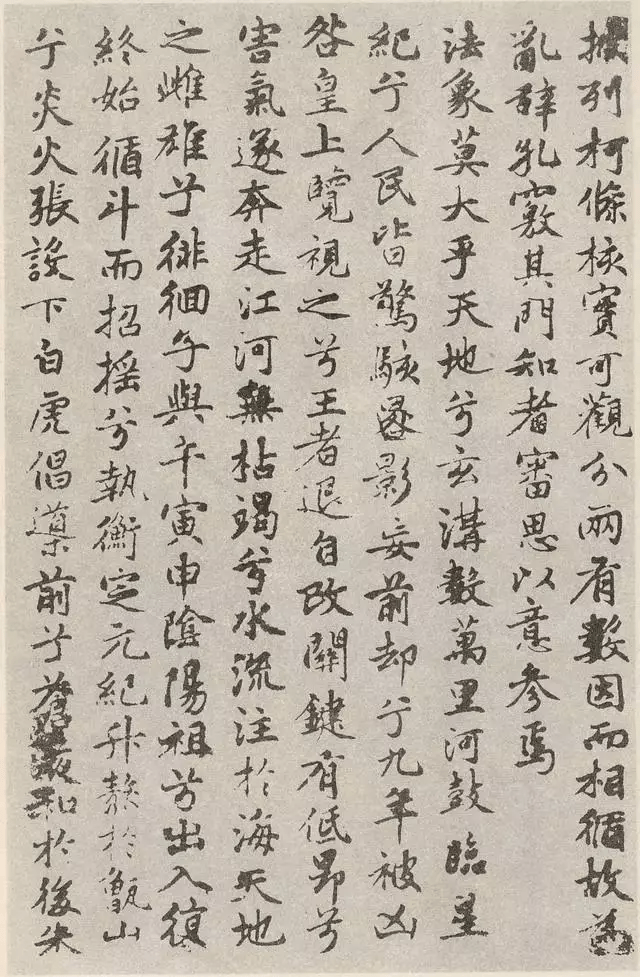 披列柯條核實可觀分兩有數因而相循故為
亂辭孔竅其門知者審思以意參焉
法象莫大乎天地兮玄溝數萬里河鼓臨星
紀兮人民皆驚駭晷影妄前却兮九年被凶
咎皇上覽視之兮王者退自改關鍵有低昂兮
害氣遂奔走江河無枯竭兮水流注於海天地
之雌雄兮徘徊子與午寅申陰陽祖兮出入復
終始循斗而招摇兮執衡定元紀升熬於甑山
兮炎火張設下白虎倡導前兮蒼和於後朱